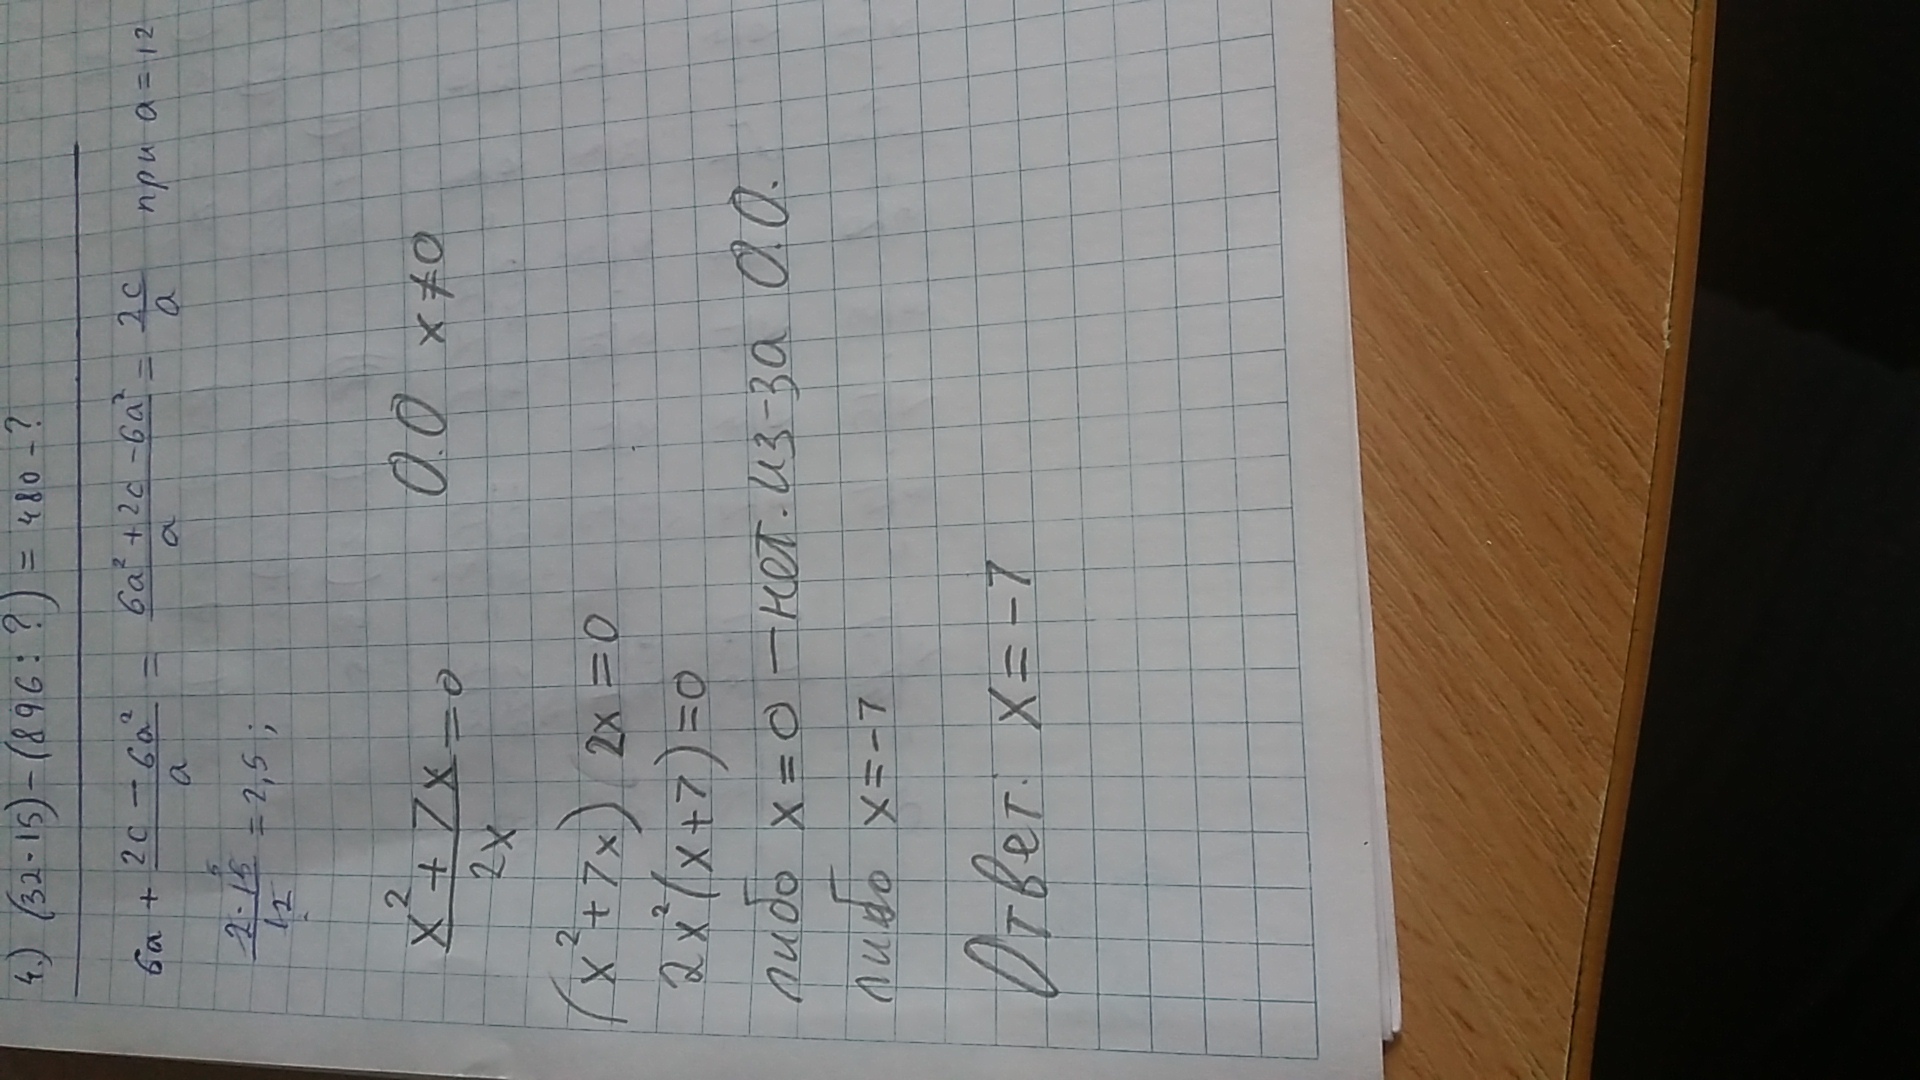 4.) (32·15)-(896:?)=480-?
6a + \frac{2c-6a²}{a} = \frac{6a²+2c-6a²}{a} = \frac{2c}{a} при a=12
\frac{2·15}{12} = 2,5;
\frac{x²+7x}{2x}=0 О.О x≠0
(x²+7x)2x=0
2x²(x+7)=0
либо x=0 – нет. из-за О.О.
либо x=-7
Ответ: x=-7